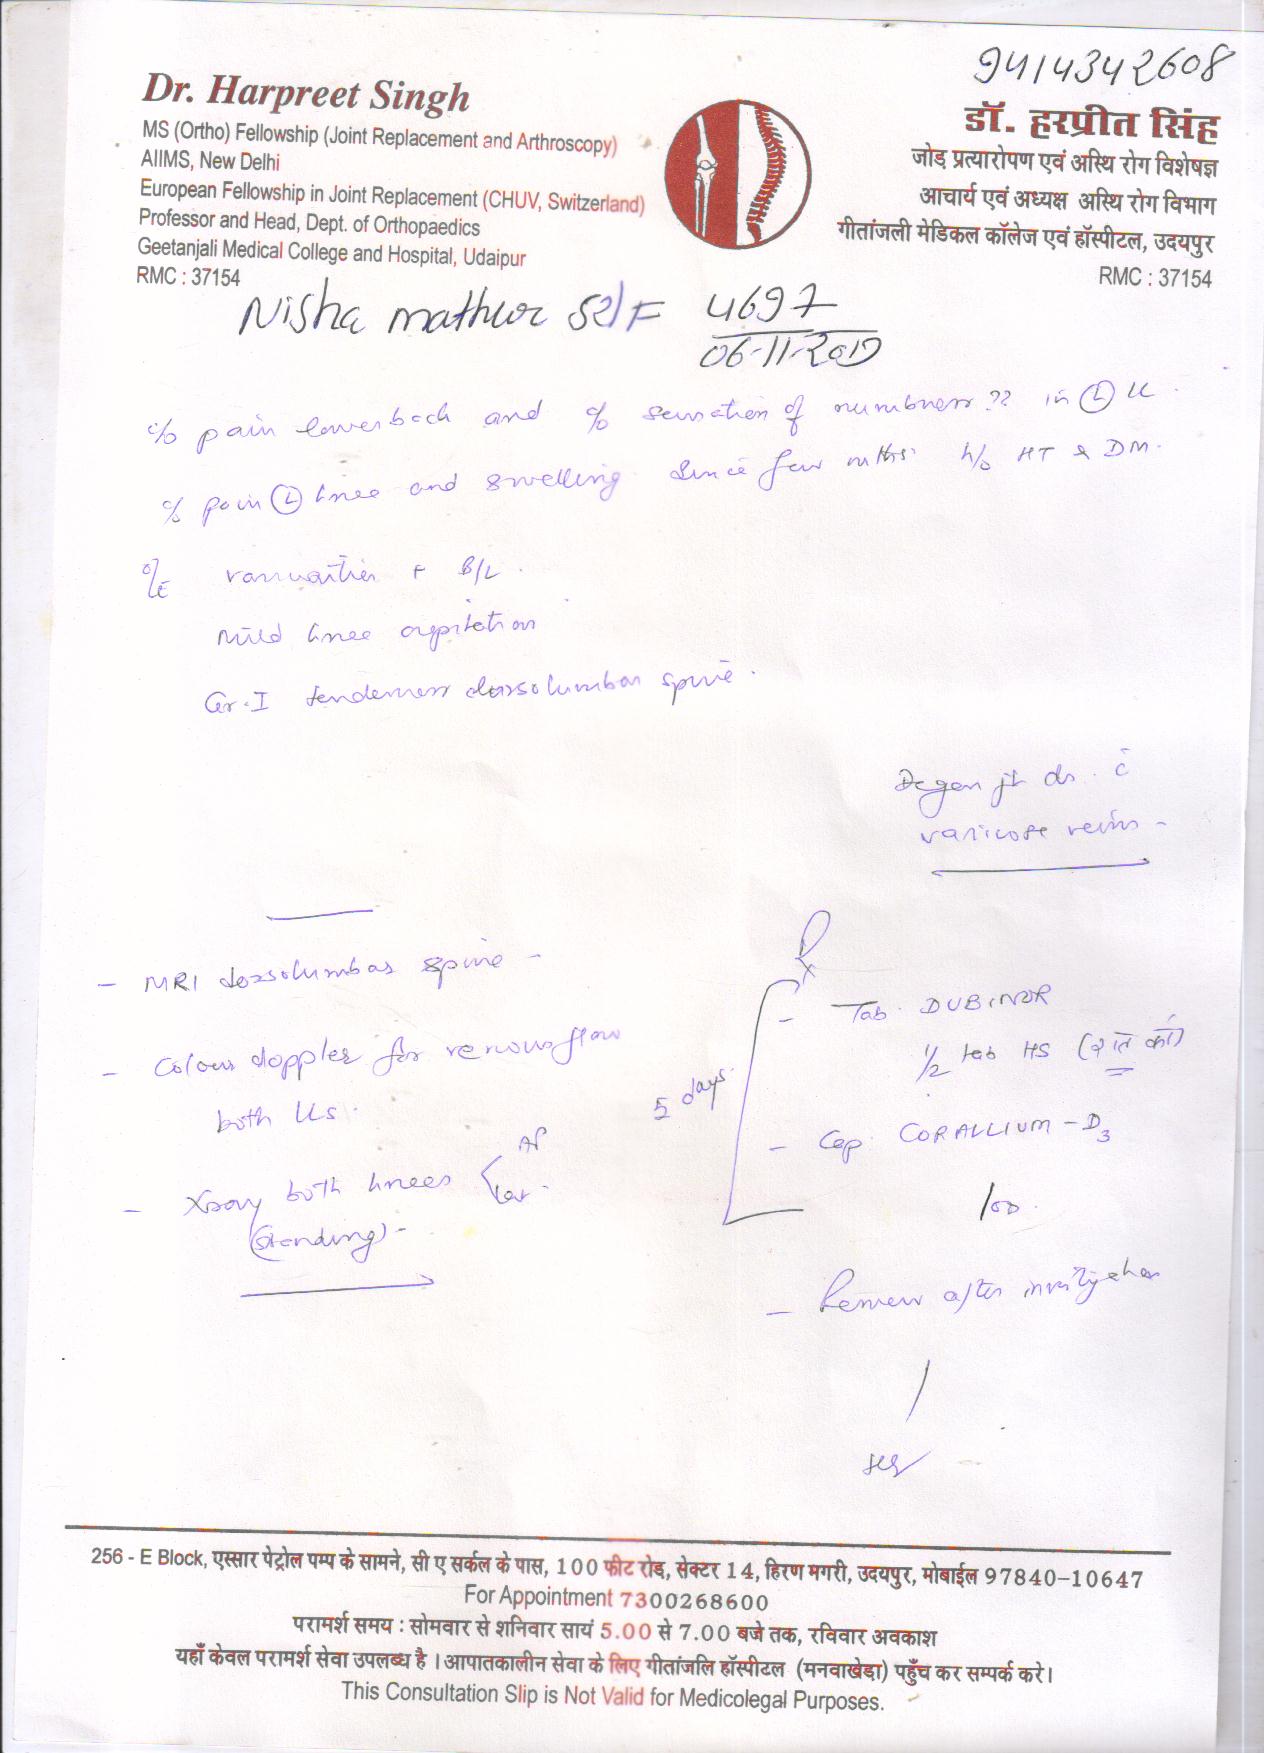 9414342608
Dr. Harpreet Singh
MS (Ortho) Fellowship (Joint Replacement and Arthroscopy)
AIIMS, New Delhi
European Fellowship in Joint Replacement (CHUV, Switzerland)
Professor and Head, Dept. of Orthopaedics
Geetanjali Medical College and Hospital, Udaipur
RMC : 37154
डॉ. हरप्रीत सिंह
जोड़ प्रत्यारोपण एवं अस्थि रोग विशेषज्ञ
आचार्य एवं अध्यक्ष अस्थि रोग विभाग
गीतांजली मेडिकल कॉलेज एवं हॉस्पीटल, उदयपुर
RMC : 37154
Nisha mathur 52/F 4697
06-11-2019
c/o pain lowerback and c/o sensation of numbness ?? in (L) LL
c/o pain (L) knee and swelling since few mths. h/o HT & DM.
O/E varicosities + B/L.
Mild knee crepitation
Gr. I tenderness dorsolumbar spine.
Degen jt ds. c̄
varicose veins -
- MRI dorsolumbar spine -
- Colour doppler for venous flow
both LLs.
- Xray both knees < AP
Lat.
(standing) -
Rx
5 days
- Tab. DUBINOR
1/2 tab HS (रात को)
- Cap. CORALLIUM - D3
1 OD.
- Review after investigation
256 - E Block, एस्सार पेट्रोल पम्प के सामने, सी ए सर्कल के पास, 100 फीट रोड़, सेक्टर 14, हिरण मगरी, उदयपुर, मोबाईल 97840-10647
For Appointment 7300268600
परामर्श समय : सोमवार से शनिवार सायं 5.00 से 7.00 बजे तक, रविवार अवकाश
यहाँ केवल परामर्श सेवा उपलब्ध है । आपातकालीन सेवा के लिए गीतांजलि हॉस्पीटल (मनवाखेड़ा) पहुँच कर सम्पर्क करे।
This Consultation Slip is Not Valid for Medicolegal Purposes.